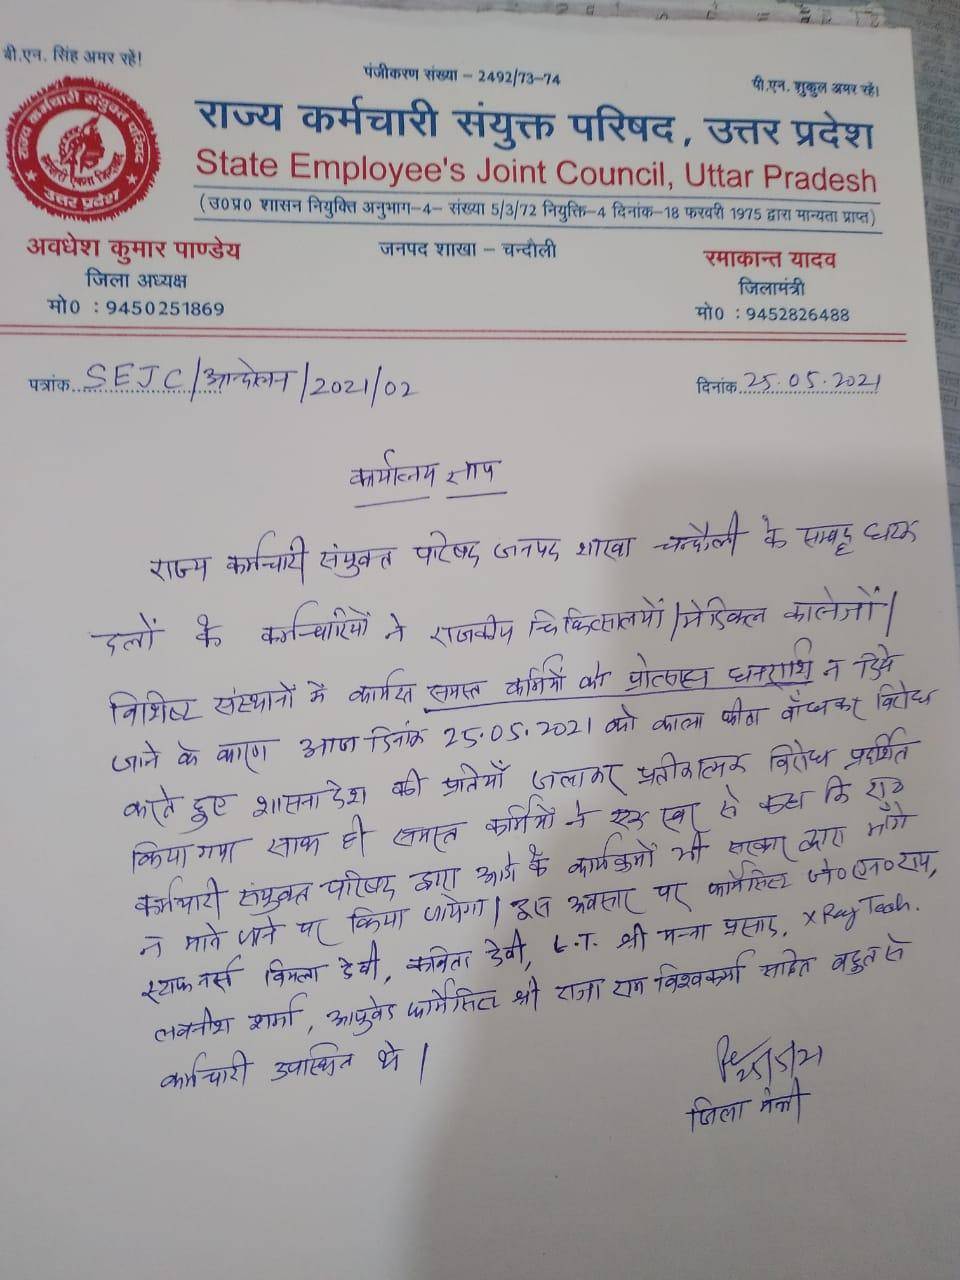 बी.एन. सिंह अमर रहें!
पंजीकरण संख्या – 2492/73-74
पी.एन. शुकुल अमर रहें!
राज्य कर्मचारी संयुक्त परिषद, उत्तर प्रदेश
State Employee's Joint Council, Uttar Pradesh
(उ0प्र0 शासन नियुक्ति अनुभाग-4- संख्या 5/3/72 नियुक्ति-4 दिनांक-18 फरवरी 1975 द्वारा मान्यता प्राप्त)
राज्य कर्मचारी संयुक्त परिषद
उत्तर प्रदेश
अवधेश कुमार पाण्डेय
जिला अध्यक्ष
मो0 : 9450251869
जनपद शाखा – चन्दौली
रमाकान्त यादव
जिलामंत्री
मो0 : 9452826488
पत्रांक SEJC/आन्दोलन/2021/02
दिनांक 25.05.2021
कार्यालय ज्ञाप
राज्य कर्मचारी संयुक्त परिषद जनपद शाखा चन्दौली के सम्बद्ध घटक
दलों के कर्मचारियों ने राजकीय चिकित्सालयों/मेडिकल कालेजों/
विशिष्ट संस्थानों में कार्यरत समस्त कर्मियों को प्रोत्साहन धनराशि न दिये
जाने के कारण आज दिनांक 25.05.2021 को काला फीता बाँधकर विरोध
करते हुए शासनादेश की प्रतियाँ जलाकर प्रतीकात्मक विरोध प्रदर्शित
किया गया साथ ही समस्त कर्मियों ने एक स्वर से कहा कि राज्य
कर्मचारी संयुक्त परिषद द्वारा आगे के कार्यक्रमों भी सरकार द्वारा माँगे
न माने जाने पर किया जायेगा। इस अवसर पर फार्मासिस्ट जे०एन०राय,
स्टाफ नर्स विमला देवी, कविता देवी, L.T. श्री मन्ना प्रसाद, X Ray Tech.
लवनीश शर्मा, आयुर्वेद फार्मासिस्ट श्री राजा राम विश्वकर्मा सहित बहुत से
कर्मचारी उपस्थित थे।
25/5/21
जिला मंत्री